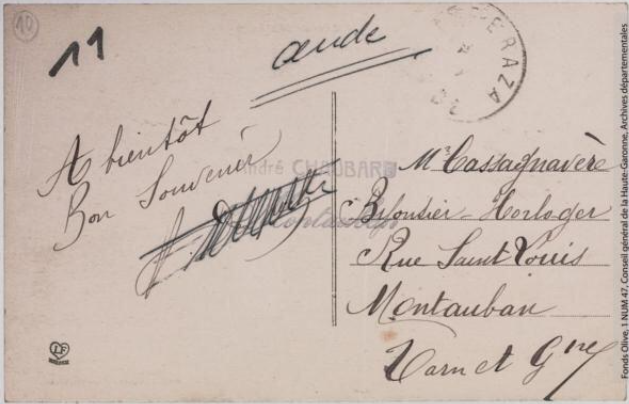 10
11
aude
ERAZA
A bientôt
Bon Souvenir
André CHAUBARD
Montauban
Mr Cassagnavère
Bijoutier - Horloger
Rue Saint Louis
Montauban
Tarn et Gne
LF
Fonds Olive, 1 NUM 47, Conseil général de la Haute-Garonne, Archives départementales